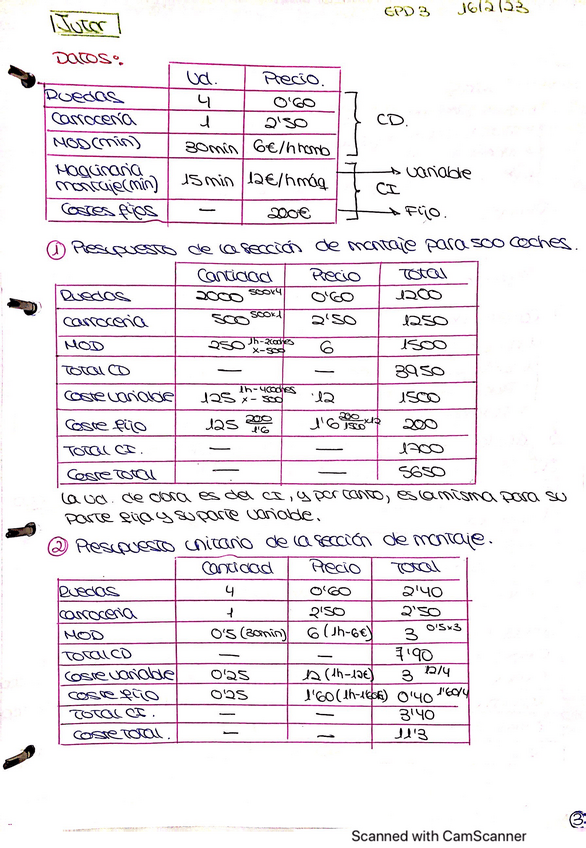 Jutor
EPD 3 16/2/23
Datos:
Ud. Precio.
Ruedas 4 0'60
Carrocería 1 2'50
MOD (min) 30min 6€/hhomb
CD.
Maquinaria montaje (min) 15min 12€/hmáq
Variable
CI
Costes fijos — 200€
Fijo.
① Presupuesto de la sección de montaje para 500 coches.
Cantidad Precio Total
Ruedas 2000 500x4 0'60 1200
Carrocería 500 500x1 2'50 1250
MOD 250 1h-2coches x-500 6 1500
Total CD — — 3950
Coste variable 125 1h-4coches x-500 12 1500
Coste fijo 125 200/1'6 1'6 200/1500 x12 200
Total CI. — — 1700
Coste Total — — 5650
La ud. de obra es del CI, y por tanto, es la misma para su
parte fija y su parte variable.
② Presupuesto unitario de la sección de montaje.
Cantidad Precio Total
Ruedas 4 0'60 2'40
Carrocería 1 2'50 2'50
MOD 0'5 (30min) 6 (1h-6€) 3 0'5x3
Total CD — — 7'90
Coste variable 0'25 12 (1h-12€) 3 12/4
Coste fijo 0'25 1'60 (1h-1'60€) 0'40 1'60/4
Total CI. — — 3'40
Coste Total. — — 11'3
③
Scanned with CamScanner